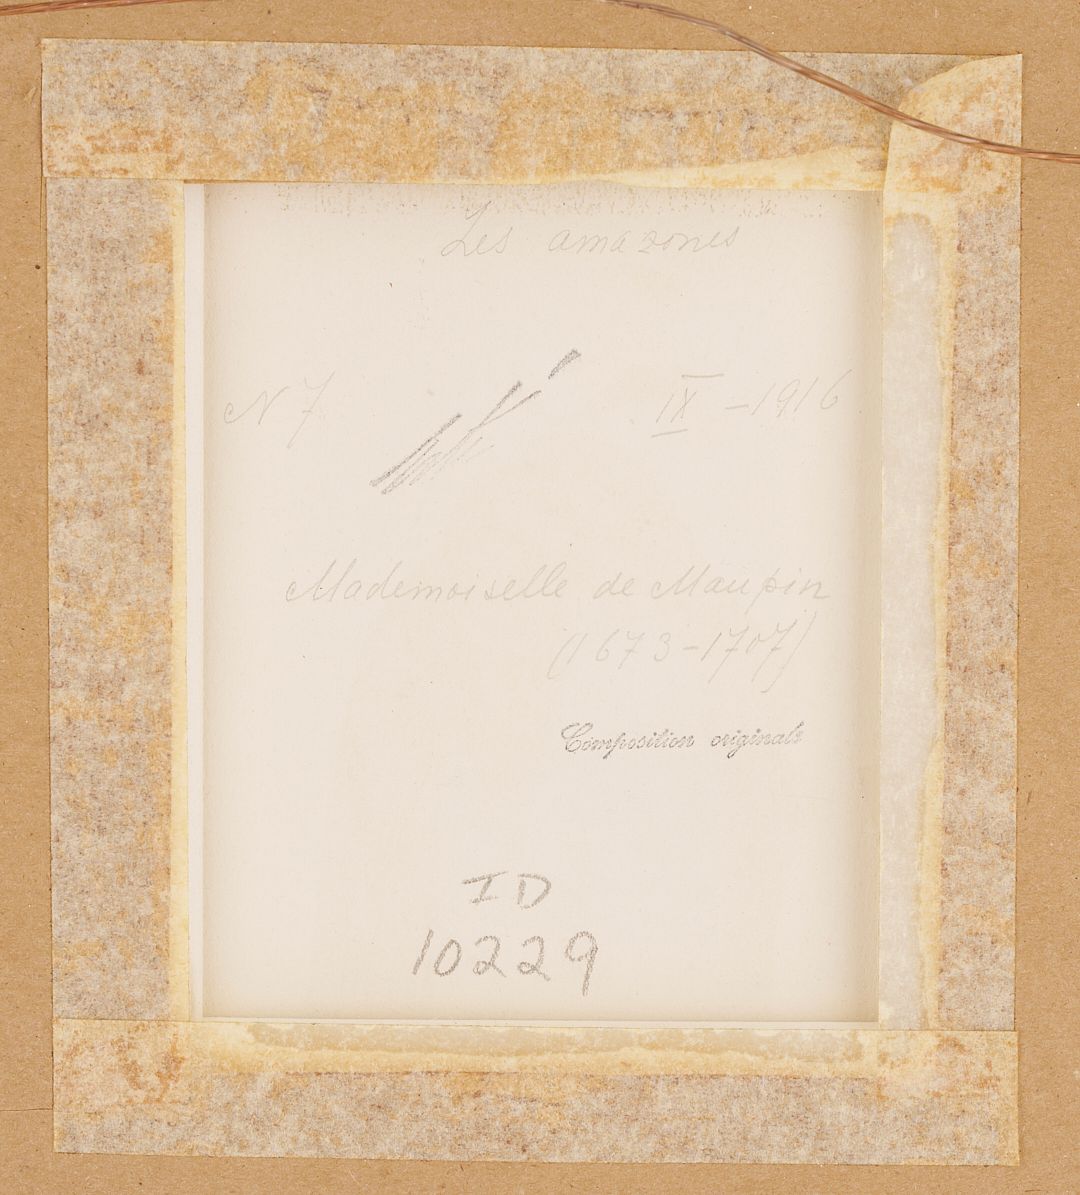 Les amazones
N 7 IX - 1916
Mademoiselle de Maupin
(1673-1707)
Composition originale
ID
10229